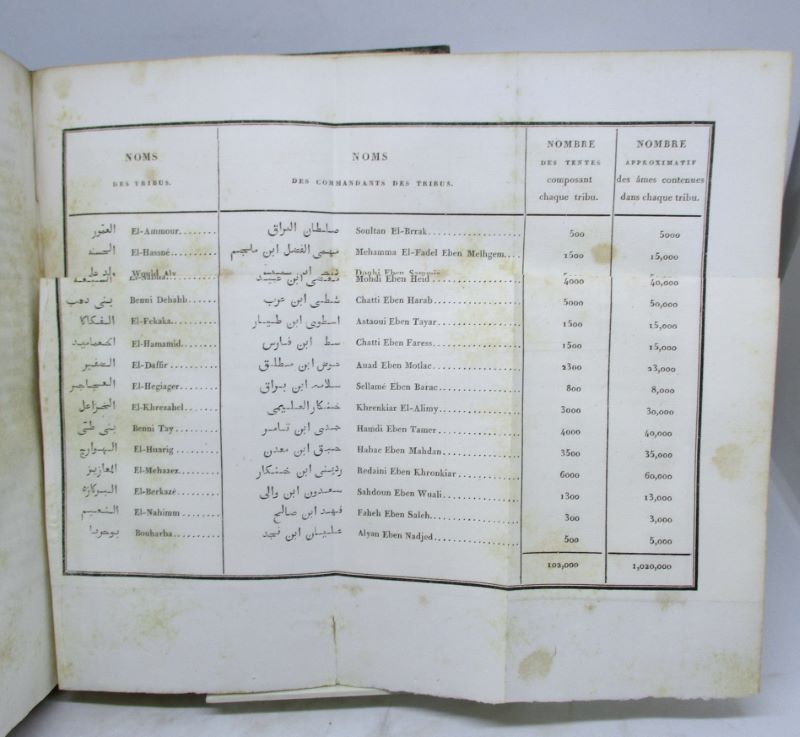 NOMS DES TRIBUS. NOMS DES COMMANDANTS DES TRIBUS. NOMBRE DES TENTES composant chaque tribu. NOMBRE APPROXIMATIF des âmes contenues dans chaque tribu.
El-Ammour........ صلطان البراق Soultan El-Brrak.................... 500 5000
الحسنه El-Hassné........ مهمى الفضل ابن ملحم Mehamma El-Fadel Eben Melhgem.... 1500 15,000
Would Aly Douhi Eben
Mohdi Eben Heid.................... 4000 40,000
بنى دهب Benni Dehabb....... شطى ابن عرب Chatti Eben Harab.................... 5000 50,000
الفكاكا El-Fekaka.......... اسطوى ابن طيار Astaoui Eben Tayar.................... 1500 15,000
El-Hamamid....... سط ابن فارس Chatti Eben Faress.................... 1500 15,000
الضفير El-Daffir .......... عوض ابن مطلق Auad Eben Motlac.................... 2300 23,000
الحجاجر El-Hegiager........ سلامه ابن براق Sellamé Eben Barac.................... 800 8,000
الخزاعل El-Khrezahel....... خنكار العليمى Khrenkiar El-Alimy.................... 3000 30,000
بنى طى Benni Tay.......... حمدى ابن تامر Hamdi Eben Tamer.................... 4000 40,000
الهوارج El-Huarig.......... ابن معدن Habac Eben Mahdan.................... 3500 35,000
المعازيز El-Mehazez........ ردينى ابن خنكار Redaini Eben Khronkiar.................... 6000 60,000
البركازه El-Berkazé......... سعدون ابن والى Sahdoun Eben Wuali.................... 1300 13,000
النعيم El-Nahimm ......... فهد ابن صالح Faheh Eben Saleh.................... 300 3,000
بوحربا Bouharba........... عليان ابن نجد Alyan Eben Nadjed.................... 500 5,000
102,000 1,020,000